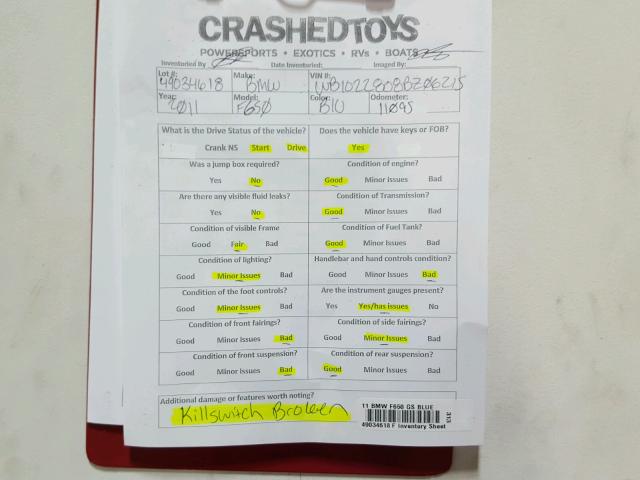 CRASHEDTOYS
POWERSPORTS • EXOTICS • RVs • BOATS
Inventoried By Date Inventoried: Imaged By:
Lot #: 49034618 Make: BMW VIN #: WB1022808BZ06215
Year: 2011 Model: F650 Color: BLU Odometer: 11095
What is the Drive Status of the vehicle? Does the vehicle have keys or FOB?
Crank NS Start Drive Yes
Was a jump box required? Condition of engine?
Yes No Good Minor Issues Bad
Are there any visible fluid leaks? Condition of Transmission?
Yes No Good Minor Issues Bad
Condition of visible Frame Condition of Fuel Tank?
Good Fair Bad Good Minor Issues Bad
Condition of lighting? Handlebar and hand controls condition?
Good Minor Issues Bad Good Minor Issues Bad
Condition of the foot controls? Are the instrument gauges present?
Good Minor Issues Bad Yes Yes/has issues No
Condition of front fairings? Condition of side fairings?
Good Minor Issues Bad Good Minor Issues Bad
Condition of front suspension? Condition of rear suspension?
Good Minor Issues Bad Good Minor Issues Bad
Additional damage or features worth noting?
Killswitch Broken
11 BMW F650 GS BLUE
313
49034618 F Inventory Sheet